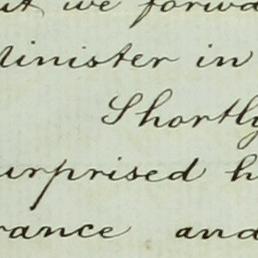 ut we forwa
Minister in
Shortly
urprised h
rance and